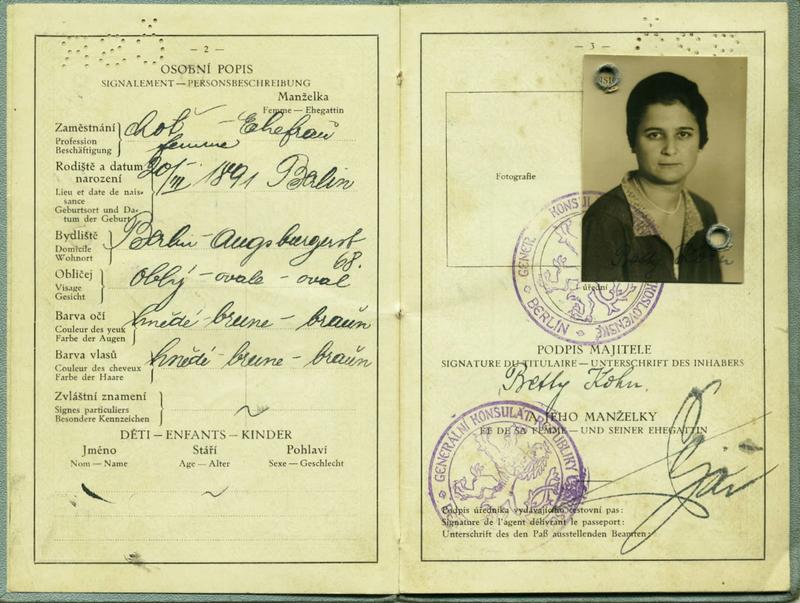 — 2 —
OSOBNÍ POPIS
SIGNALEMENT — PERSONSBESCHREIBUNG
Manželka
Femme — Ehegattin
Zaměstnání
Profession
Beschäftigung
choť - Ehefrau
femme
Rodiště a datum
narození
Lieu et date de nais-
sance
Geburtsort und Da-
tum der Geburt
20/III 1891 Berlin
Bydliště
Domicile
Wohnort
Berlin - Augsburgerst
68.
Obličej
Visage
Gesicht
oblý - ovale - oval
Barva očí
Couleur des yeux
Farbe der Augen
hnědé - brune - braun
Barva vlasů
Couleur des cheveux
Farbe der Haare
hnědé - brune - braun
Zvláštní znamení
Signes particuliers
Besondere Kennzeichen
DĚTI — ENFANTS — KINDER
Jméno Stáří Pohlaví
Nom — Name Age — Alter Sexe — Geschlecht
— 3 —
Fotografie
Betty Kohn
GENER. KONSUL
BERLIN
úřední
PODPIS MAJITELE
SIGNATURE DU TITULAIRE — UNTERSCHRIFT DES INHABERS
Betty Kohn.
A JEHO MANŽELKY
ET DE SA FEMME — UND SEINER EHEGATTIN
GENERÁLNÍ KONSULÁT REPUBLIKY
Podpis úředníka vydávajícího cestovní pas:
Signature de l'agent délivrant le passeport:
Unterschrift des den Paß ausstellenden Beamten: